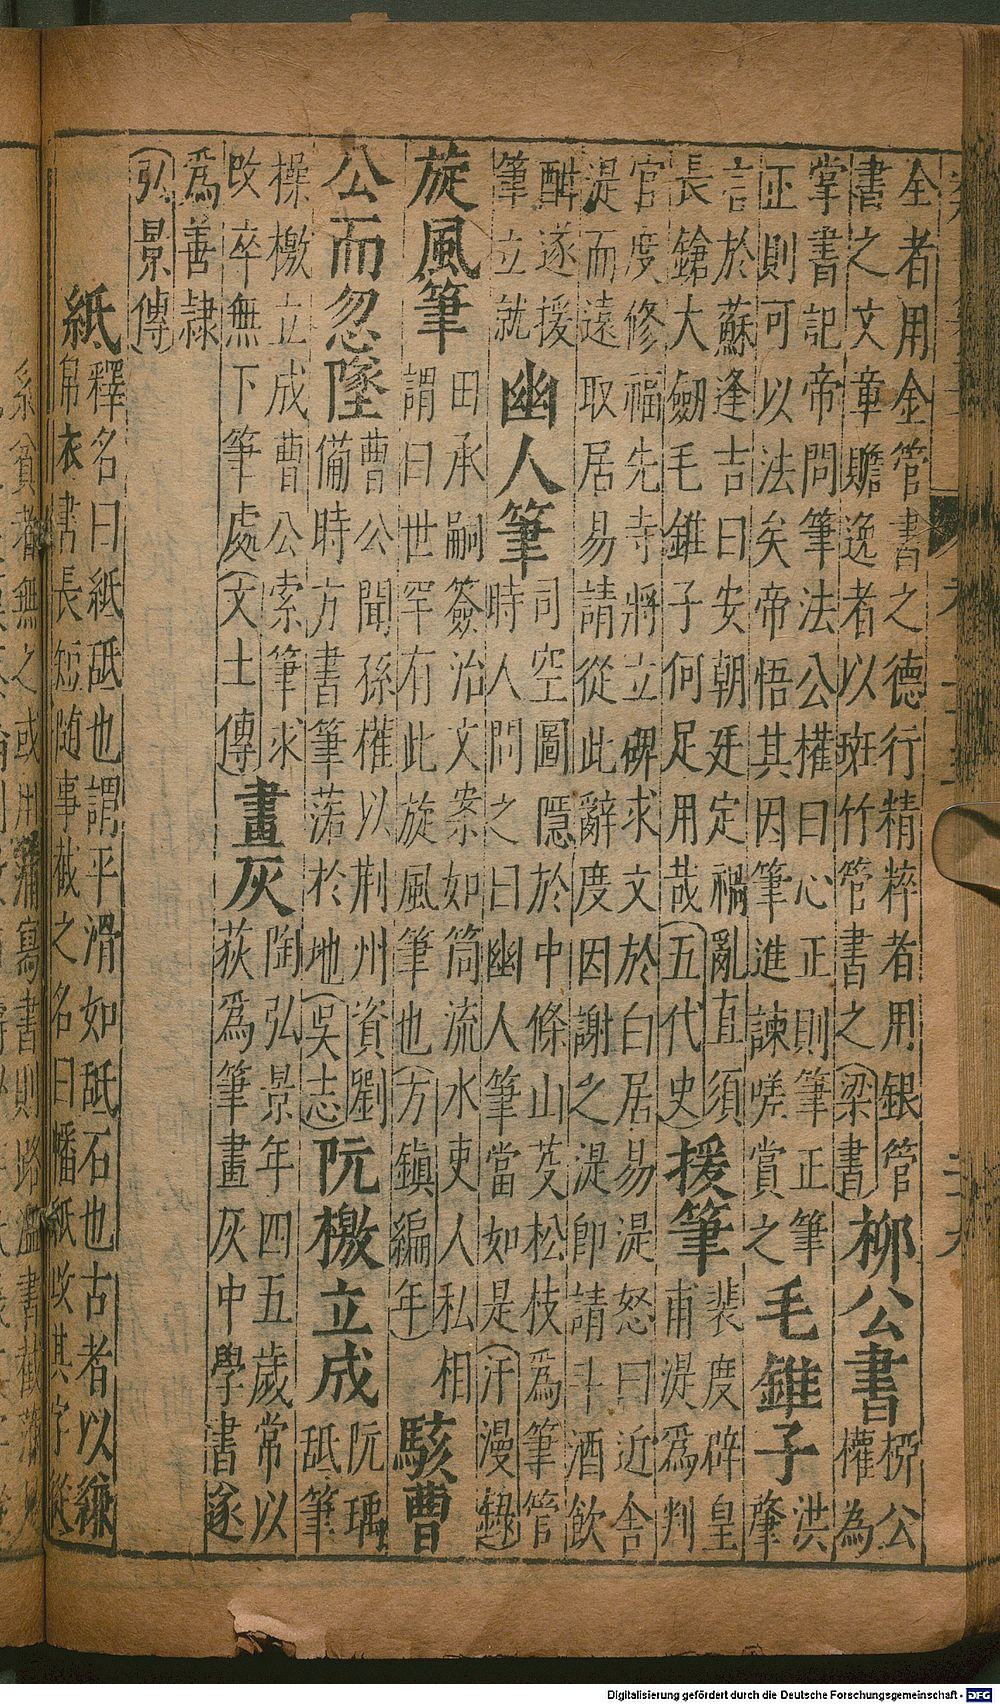 全者用金管書之德行精粹者用銀管
書之文章贍逸者以斑竹管書之(梁書)
柳公書
桺公
權為
掌書記帝問筆法公權曰心正則筆正筆
正則可以法矣帝悟其因筆進諫嗟賞之
毛錐子
洪
肇
言於蘇逢吉曰安朝廷定禍亂直須
長鎗大劒毛錐子何足用哉(五代史)
援筆
裴度辟皇
甫湜為判
官度修福先寺將立碑求文於白居易湜怒曰近舍
湜而遠取居易請從此辭度因謝之湜即請斗酒飲
酣遂援
筆立就
幽人筆
司空圖隱於中條山芟松枝為筆管
時人問之曰幽人筆當如是(汗漫錄)
旋風筆
田承嗣簽治文案如筒流水吏人私相
謂曰世罕有此旋風筆也(方鎮編年)
駭曹
公而忽墜
曹公聞孫權以荊州資劉
備時方書筆落於地(吳志)
阮檄立成
阮瑀
舐筆
操檄立成曹公索筆求
改卒無下筆處(文士傳)
畫灰
陶弘景年四五歲常以
荻為筆畫灰中學書遂
為善隸
(弘景傳)
紙
釋名曰紙砥也謂平滑如砥石也古者以縑
帛衣書長短随事截之名曰幡紙故其字從
系貧者無之或用蒲寫書則路溫舒截蒲
Digitalisierung gefördert durch die Deutsche Forschungsgemeinschaft - DFG